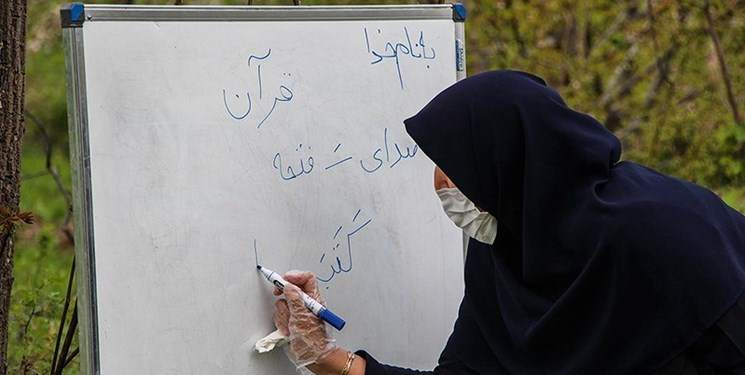 به نام خدا
قرآن
صدای ـَ فتحه
کَتَبَ